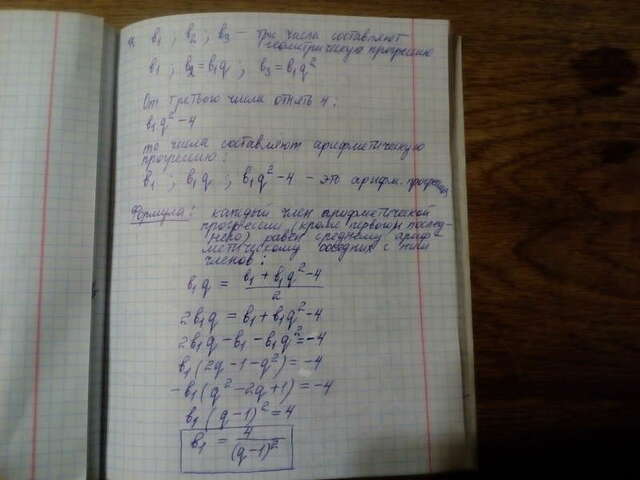 b₁ ; b₂ ; b₃ – три числа составляют
геометрическую прогрессию
b₁ ; b₂ = b₁q ; b₃ = b₁q²
От третьего числа отнять 4 :
b₁q² – 4
то числа составляют арифметическую
прогрессию :
b₁ ; b₁q ; b₁q² – 4 – это арифм. прогрессия
Формула : каждый член арифметической
прогрессии (кроме первого и послед-
него) равен среднему ариф-
метическому соседних с ним
членов :
b₁q = (b₁ + b₁q² – 4) / 2
2b₁q = b₁ + b₁q² – 4
2b₁q – b₁ – b₁q² = –4
b₁(2q – 1 – q²) = –4
–b₁(q² – 2q + 1) = –4
b₁(q – 1)² = 4
b₁ = 4 / (q – 1)²